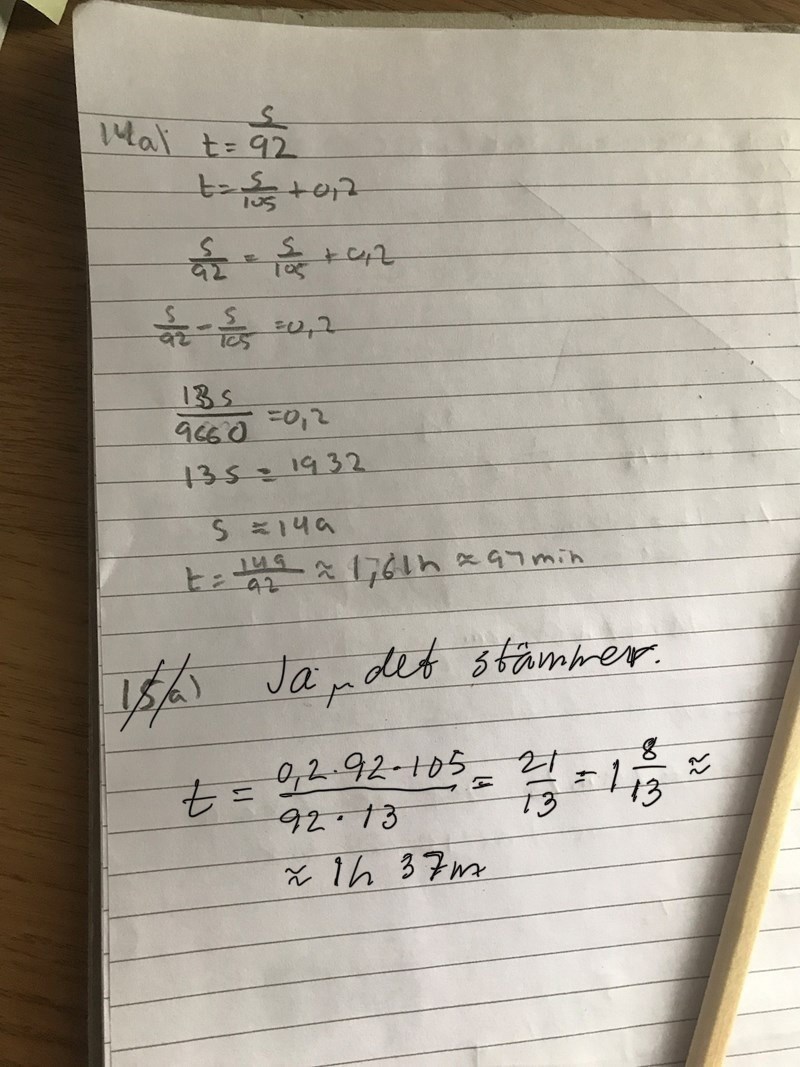 14a) t = s/92
t = s/105 + 0,2
s/92 = s/105 + 0,2
s/92 - s/105 = 0,2
13s/9660 = 0,2
13s = 1932
s ≈ 149
t = 149/92 ≈ 1,61h ≈ 97min
15a) Ja, det stämmer.
t = 0,2·92·105/92·13 = 21/13 = 1 8/13 ≈
≈ 1h 37m